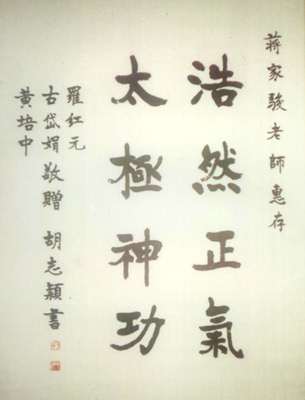 蔣家駿老師惠存
浩然正氣
太極神功
羅紅元
古岱娟敬贈 胡志穎書
黃培中